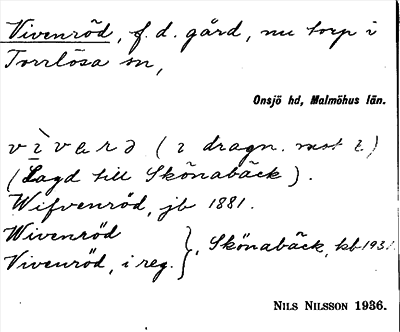 Vivenröd, f. d. gård, nu torp i
Torrlösa sn,
Onsjö hd, Malmöhus län.
vìverə (i dragn. mot e.)
(Lagd till Skönabäck).
Wifvenröd, jb 1881.
Wivenröd
Vivenröd, i reg. }, Skönabäck, kb 1931.
NILS NILSSON 1936.